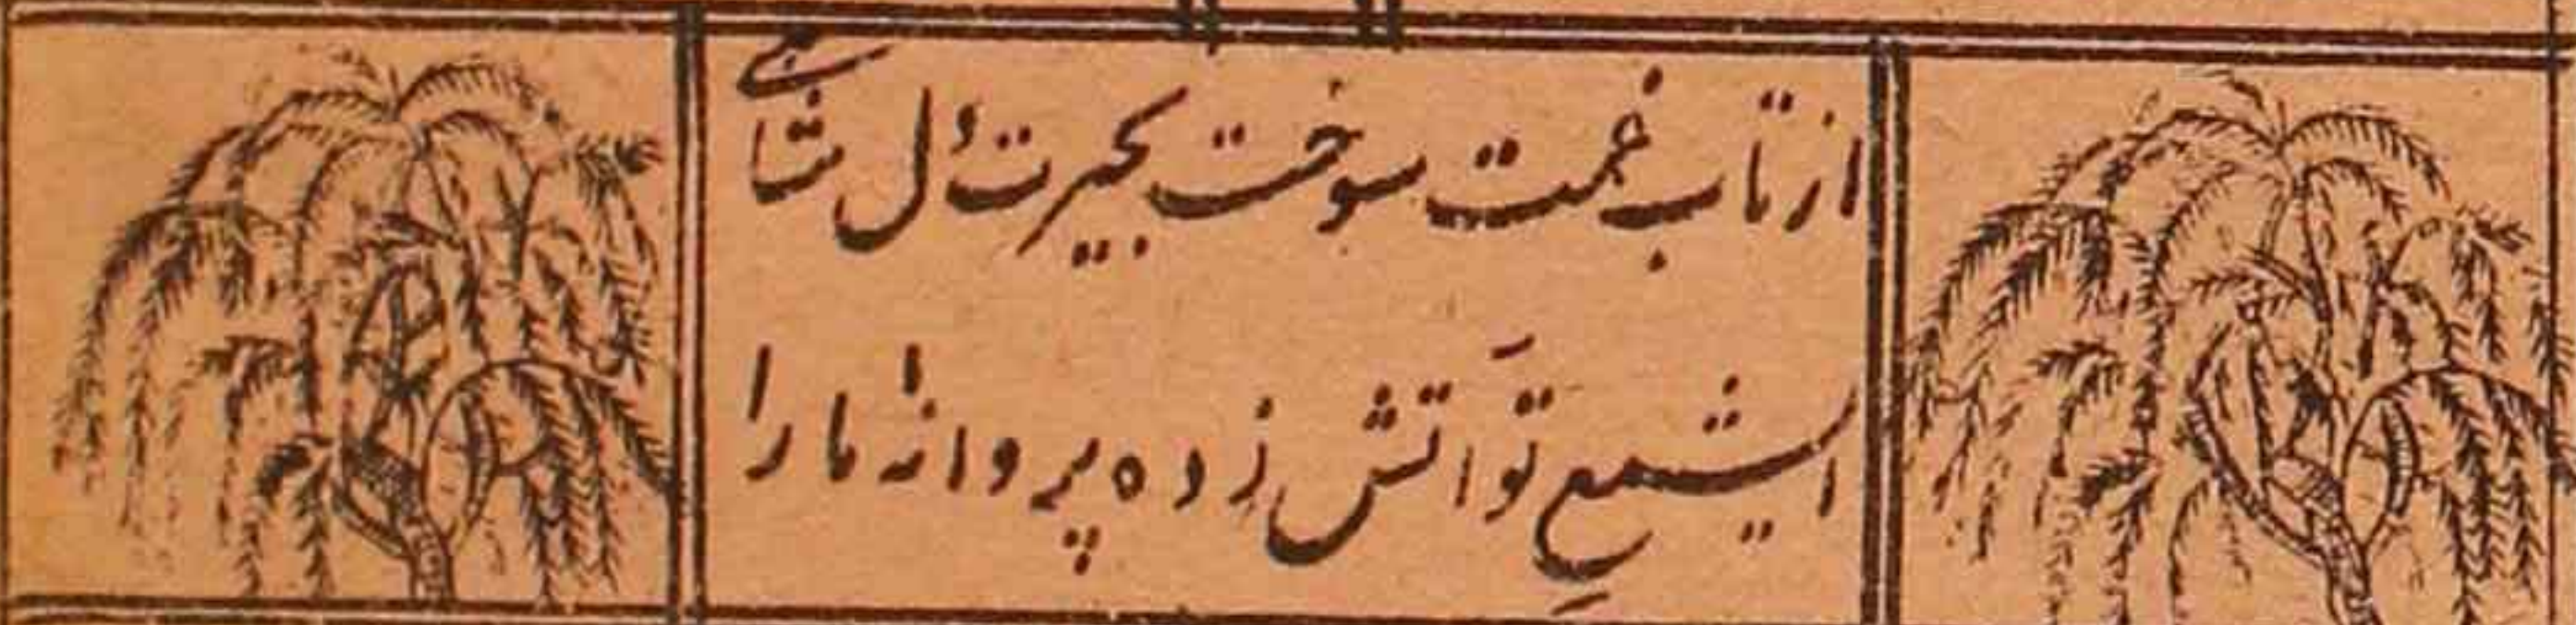 از تاب غمت سوخت بحیرت دل
ایشمعِ تو آتش زده پروانه ما را